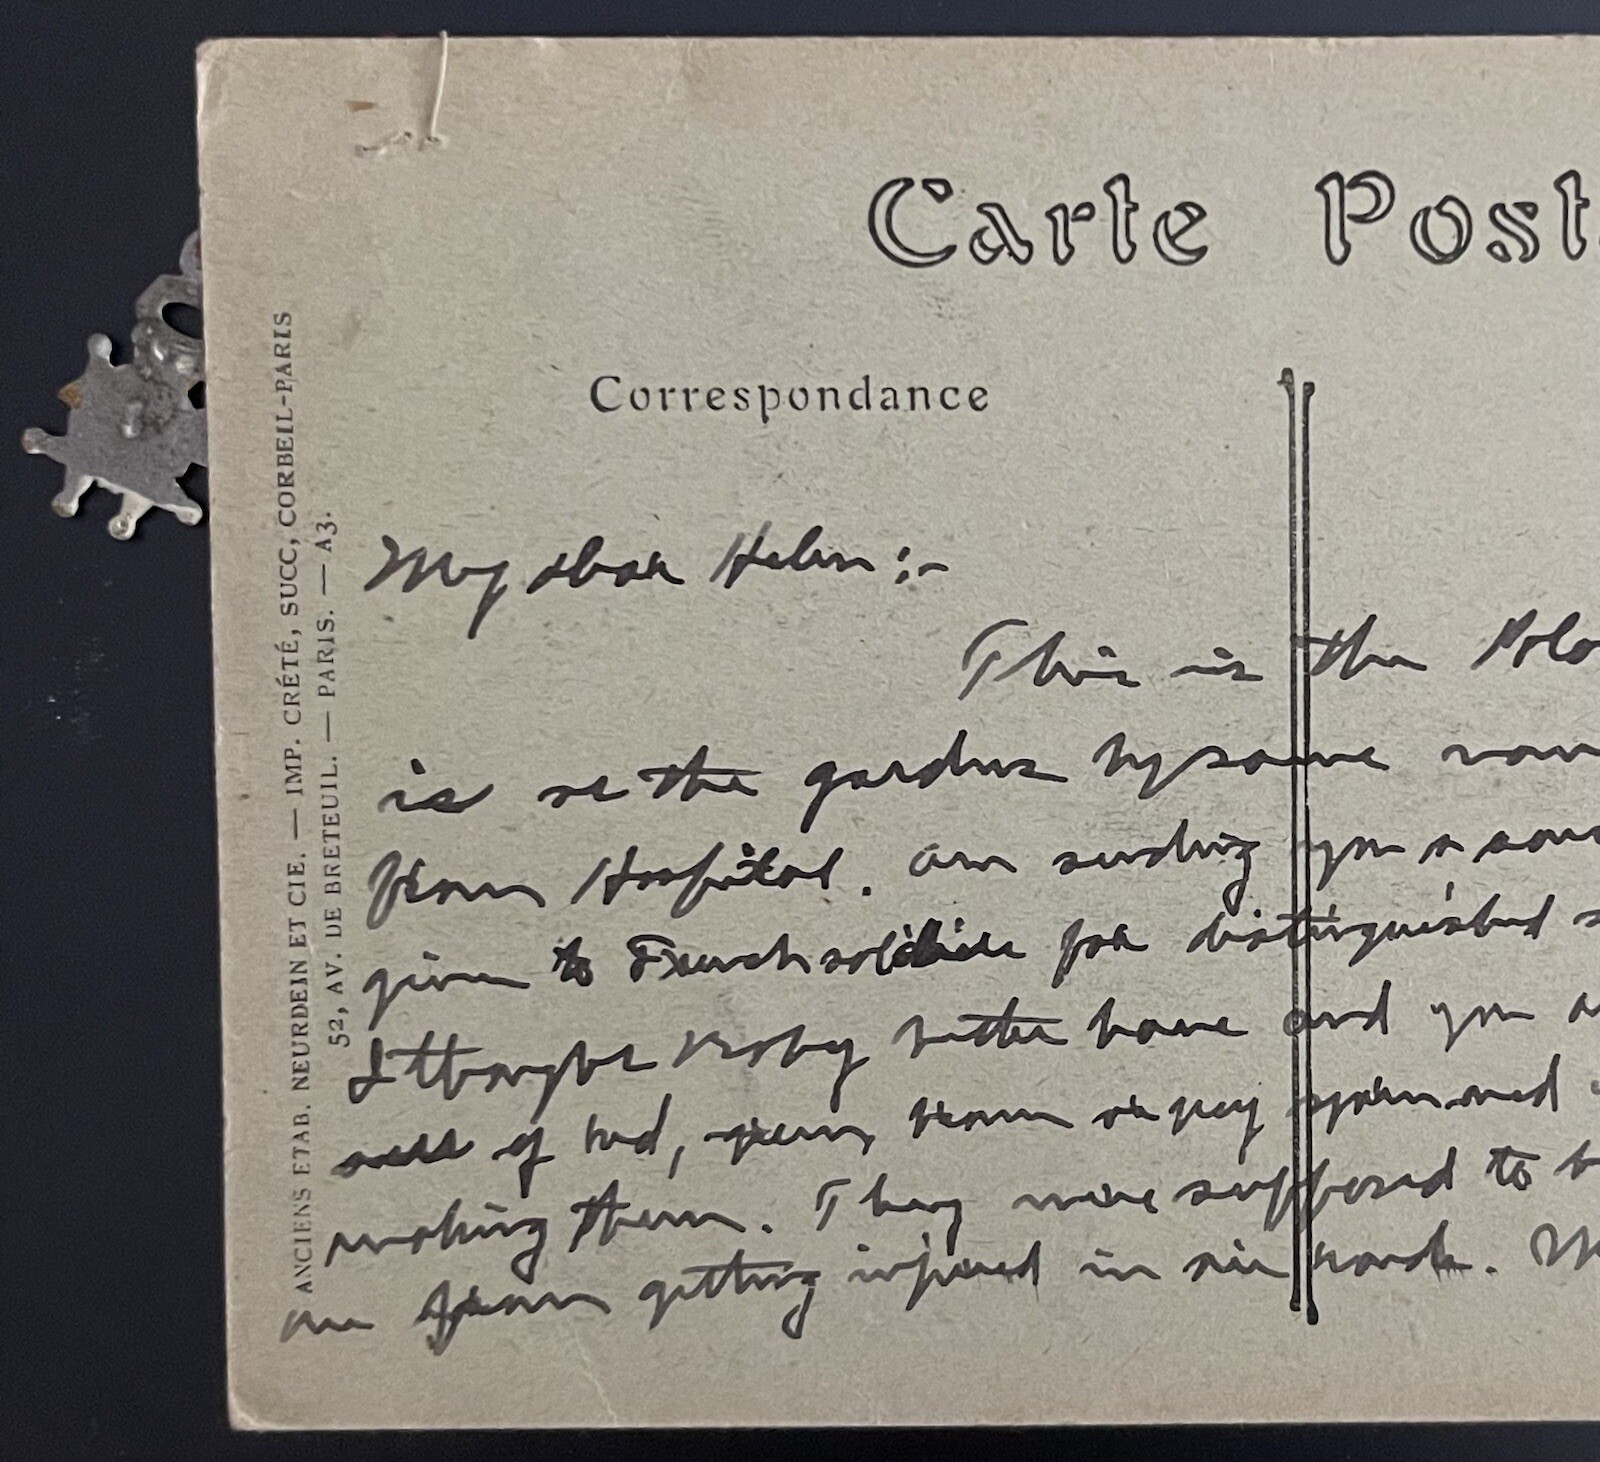 Carte Post
Correspondance
ANCIENS ETAB. NEURDEIN ET CIE. — IMP. CRÉTÉ, SUCC, CORBEIL-PARIS
52, AV. DE BRETEUIL. — PARIS. — A3.
My dear Helen :-
This is the
is the garden
from Hospital. am sending you a
given to French soldier for distinguished
I thought baby better have and you
of bed,
making them. They were supposed to
one from getting injured in air raids.